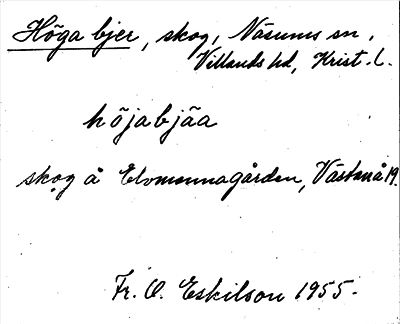 Höga bjer, skog, Näsums sn,
Villands hd, Krist. l.
hõjabjäa
skog å Elvmannagården, Västanå 19.
Fr. O. Eskilson 1955.